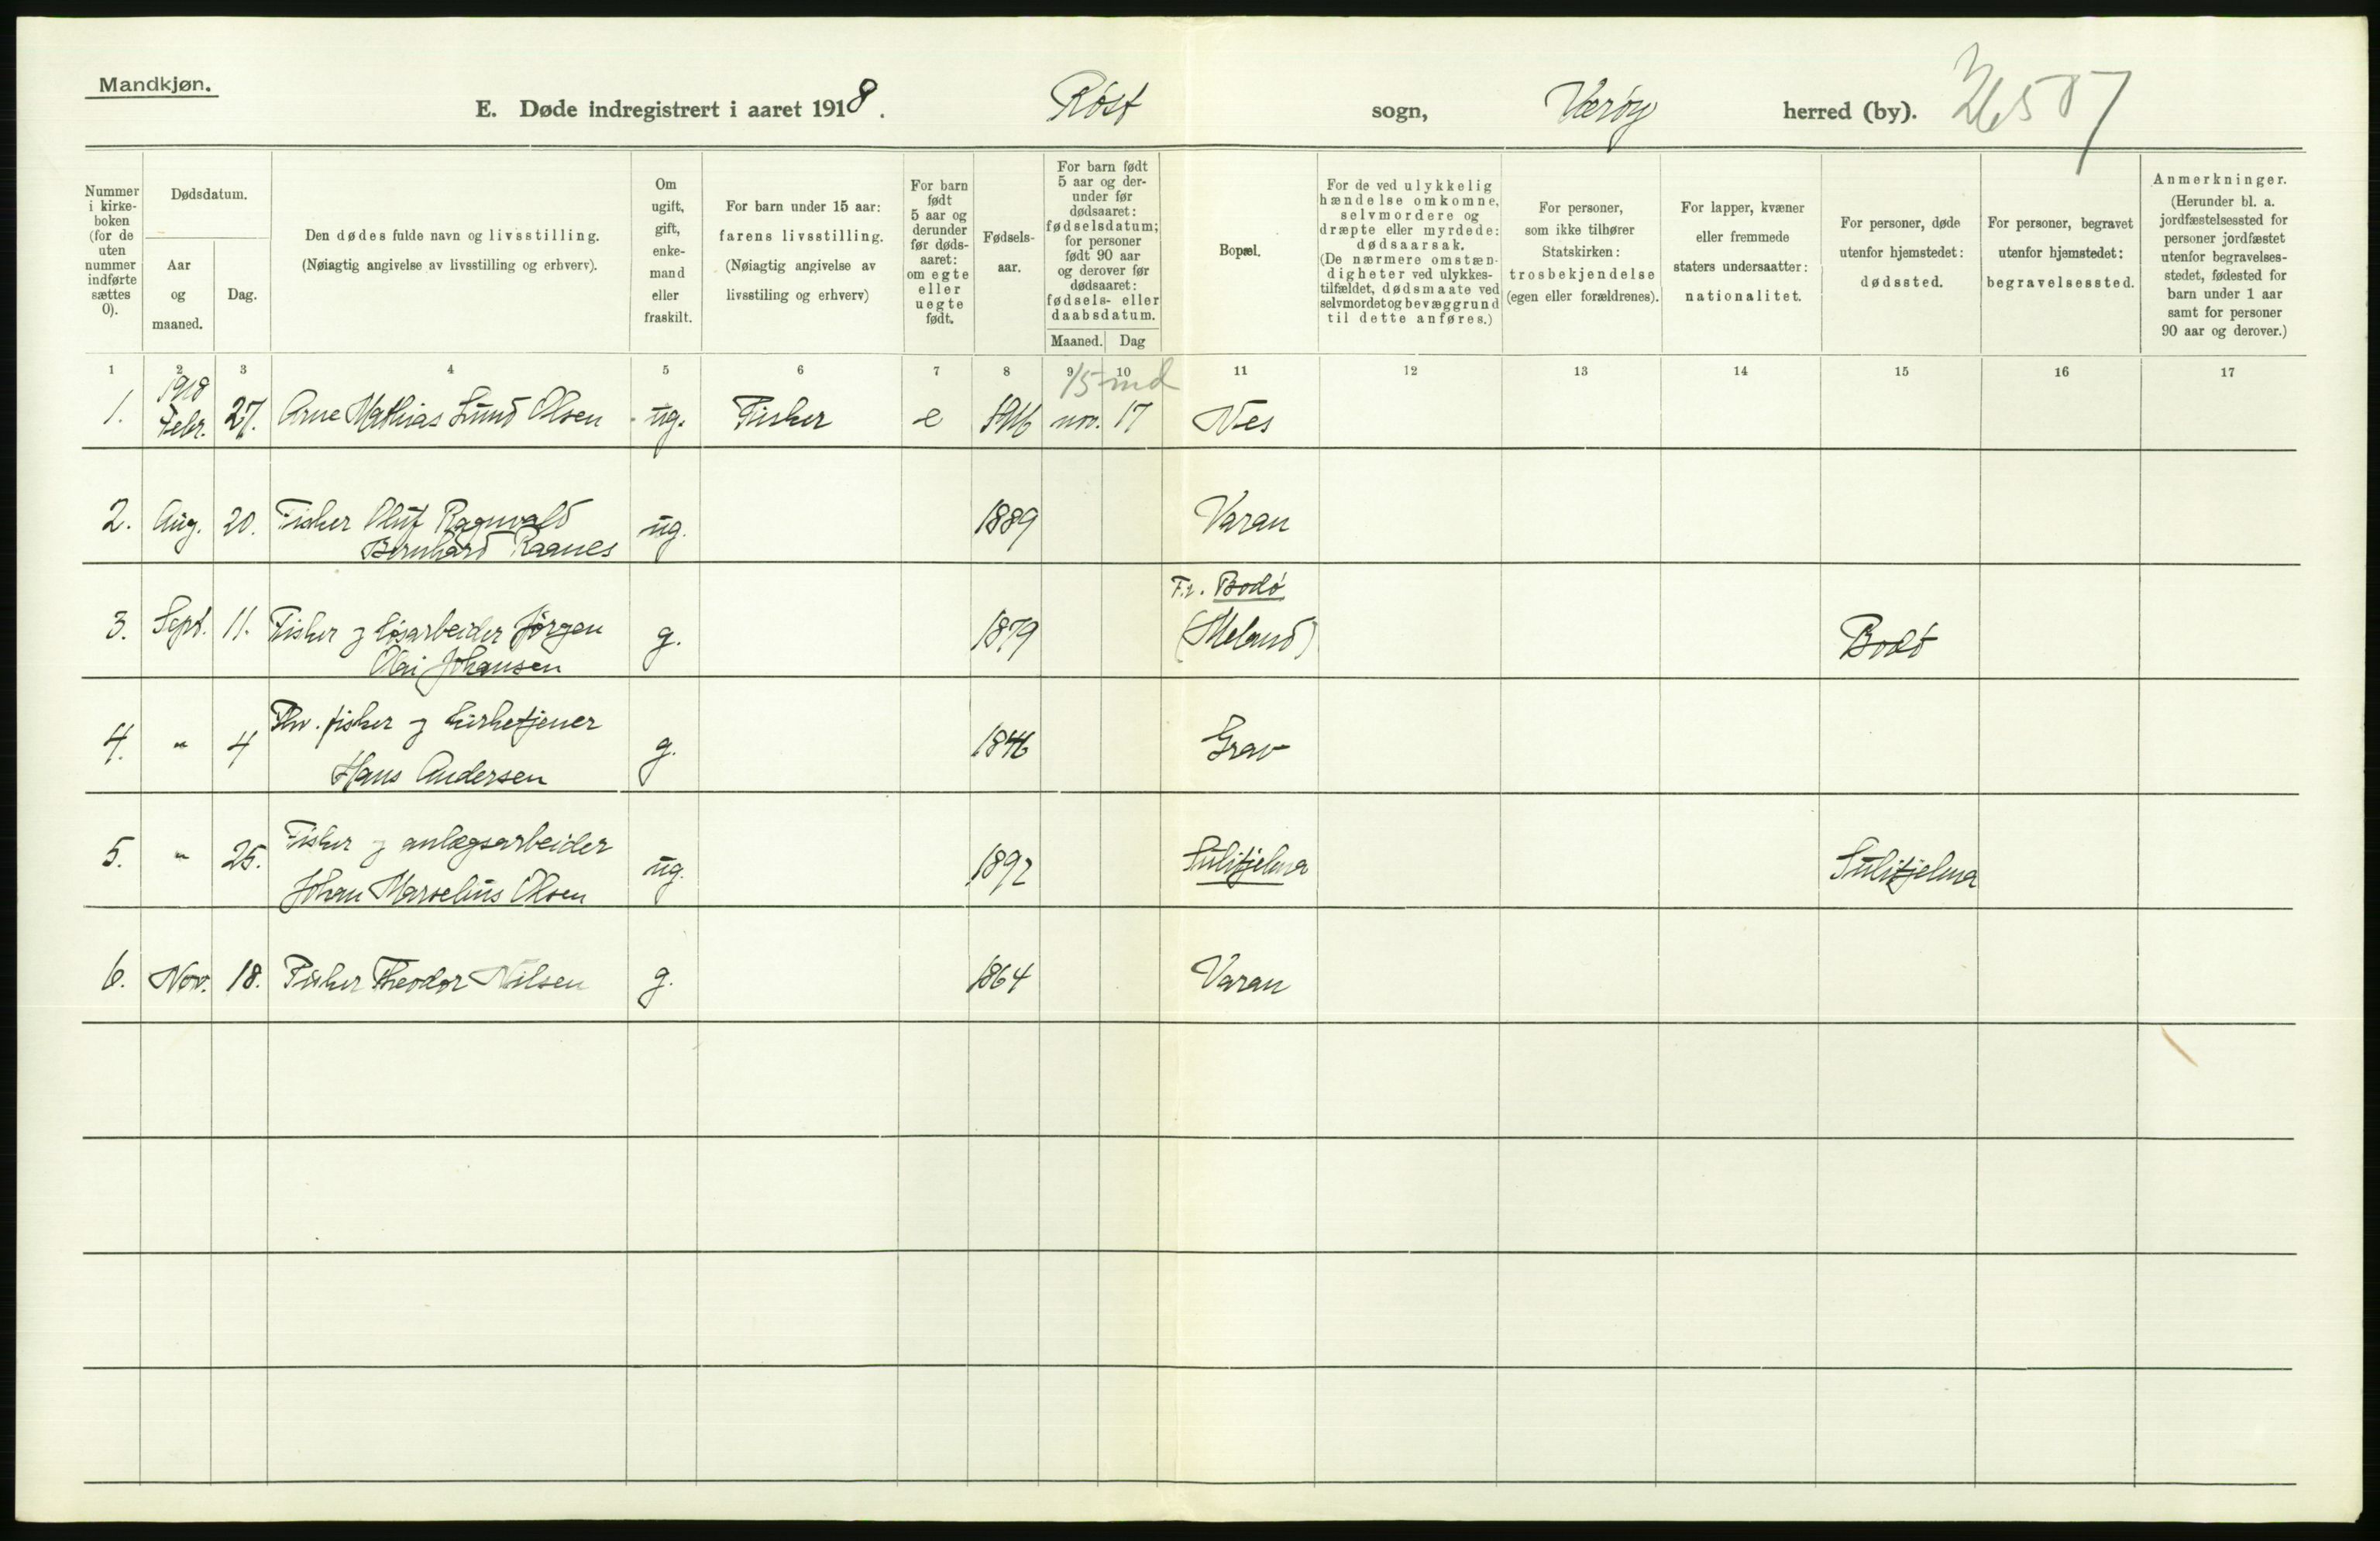 Mandkjøn.
E. Døde indregistrert i aaret 1918. Røst sogn, Værøy herred (by).
Nummer i kirke-boken (for de uten nummer indførte sættes 0).
Dødsdatum.
Aar og maaned.
Dag.
Den dødes fulde navn og livsstilling.
(Nøiagtig angivelse av livsstilling og erhverv).
Om ugift, gift, enke-mand eller fraskilt.
For barn under 15 aar: farens livsstilling.
(Nøiagtig angivelse av livsstiling og erhverv)
For barn født 5 aar og derunder før døds-aaret: om egte eller uegte født.
Fødsels-aar.
For barn født 5 aar og der-under før dødsaaret: fødselsdatum; for personer født 90 aar og derover før dødsaaret: fødsels- eller daabsdatum.
Maaned. Dag
Bopæl.
For de ved ulykkelig hændelse omkomne, selvmordere og dræpte eller myrdede: dødsaarsak.
(De nærmere omstæn-digheter ved ulykkes-tilfældet, dødsmaate ved selvmordet og bevæggrund til dette anføres.)
For personer, som ikke tilhører Statskirken: trosbekjendelse (egen eller forældrenes).
For lapper, kvæner eller fremmede staters undersaatter: nationalitet.
For personer, døde utenfor hjemstedet: dødssted.
For personer, begravet utenfor hjemstedet: begravelsessted.
Anmerkninger.
(Herunder bl. a. jordfæstelsessted for personer jordfæstet utenfor begravelses-stedet, fødested for barn under 1 aar samt for personer 90 aar og derover.)
1 2 3 4 5 6 7 8 9 10 11 12 13 14 15 16 17
1918 15 md
1. Febr. 27. Arne Mathias Lund Olsen ug. Fisker e 1916 nov. 17 Nes
2. Aug. 20. Fisker Oluf Ragnvald ug. 1889 Varan
Bernhard Raanes
Bodø
3. Sept. 11. Fisker og løsarbeider Jørgen g. 1879 Bodø
Olai Johansen
fisker og kirketjener
4. " 4 Hans Andersen g. 1846 Grav
Fisker og anlægsarbeider
5. " 25. Johan Marselius Olsen ug. 1892 Sulitjelma Sulitjelma
6. Nov. 18. Fisker Theodor Nilsen g. 1864 Varan